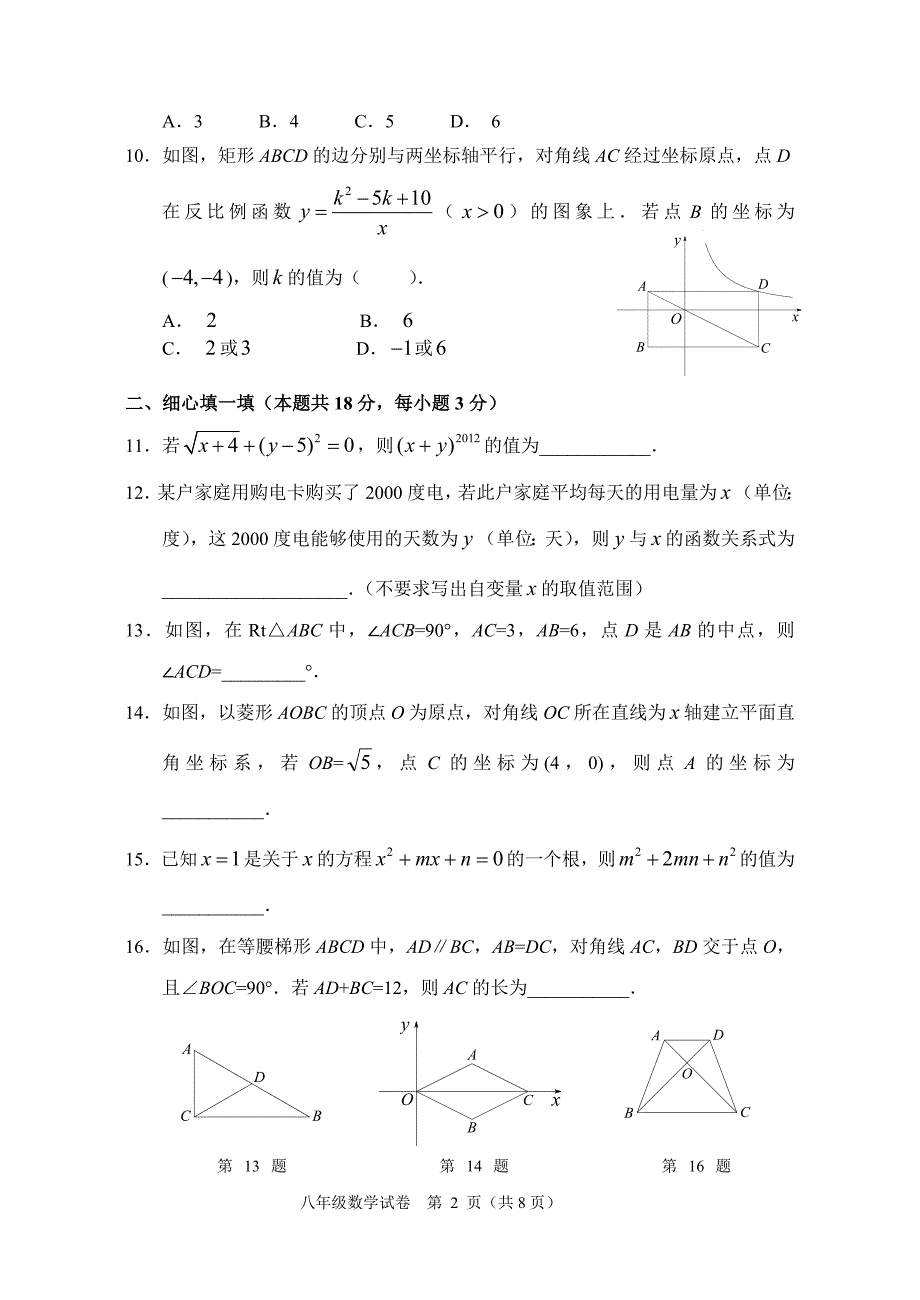 A．3 B．4 C．5 D． 6
10．如图，矩形 ABCD 的边分别与两坐标轴平行，对角线 AC 经过坐标原点，点 D
在反比例函数 y=\frac{k^2-5k+10}{x}（ x>0）的图象上．若点 B 的坐标为
(−4,−4)，则 k 的值为（ ）．
A． 2 B． 6
C． 2或3 D．−1或6
y
A D
O x
B C
二、细心填一填（本题共 18 分，每小题 3 分）
11．若 \sqrt{x+4}+(y−5)^2=0，则 (x+y)^{2012} 的值为____________．
12．某户家庭用购电卡购买了 2000 度电，若此户家庭平均每天的用电量为 x（单位：
度），这 2000 度电能够使用的天数为 y（单位：天），则 y 与 x 的函数关系式为
____________________．（不要求写出自变量 x 的取值范围）
13．如图，在 Rt△ABC 中，∠ACB=90°，AC=3，AB=6，点 D 是 AB 的中点，则
∠ACD=_________°．
14．如图，以菱形 AOBC 的顶点 O 为原点，对角线 OC 所在直线为 x 轴建立平面直
角坐标系，若 OB=\sqrt{5}，点 C 的坐标为(4，0)，则点 A 的坐标为
___________．
15．已知 x=1 是关于 x 的方程 x^2+mx+n=0 的一个根，则 m^2+2mn+n^2 的值为
___________．
16．如图，在等腰梯形 ABCD 中，AD∥BC，AB=DC，对角线 AC，BD 交于点 O，
且∠BOC=90°．若 AD+BC=12，则 AC 的长为___________．
A
D
C B
y
A
O C x
B
A D
O
B C
第 13 题 第 14 题 第 16 题
八年级数学试卷 第 2 页（共 8 页）